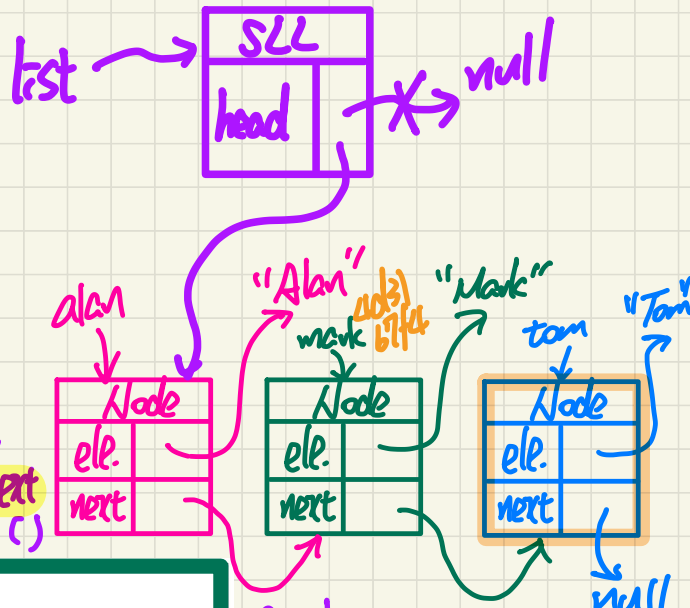 SLL
list
head
null
alan
"Alan"
mark
"Mark"
tom
"Tom"
Node
ele.
next
Node
ele.
next
Node
ele.
next
ext
()
null